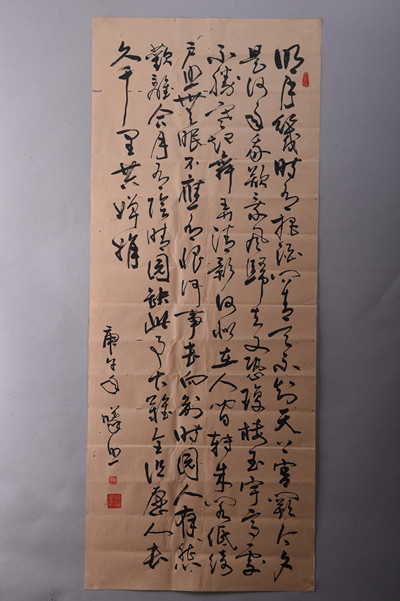 明月幾時有把酒问青天不知天上宫闕今夕
是何年我欲乘风歸去又恐瓊楼玉宇高處
不勝寒起舞弄清影何似在人间转朱阁低绮
户照無眠不應有恨何事长向别時圆人有悲
歡離合月有陰晴圆缺此事古難全但愿人长
久千里共婵娟
庚午年